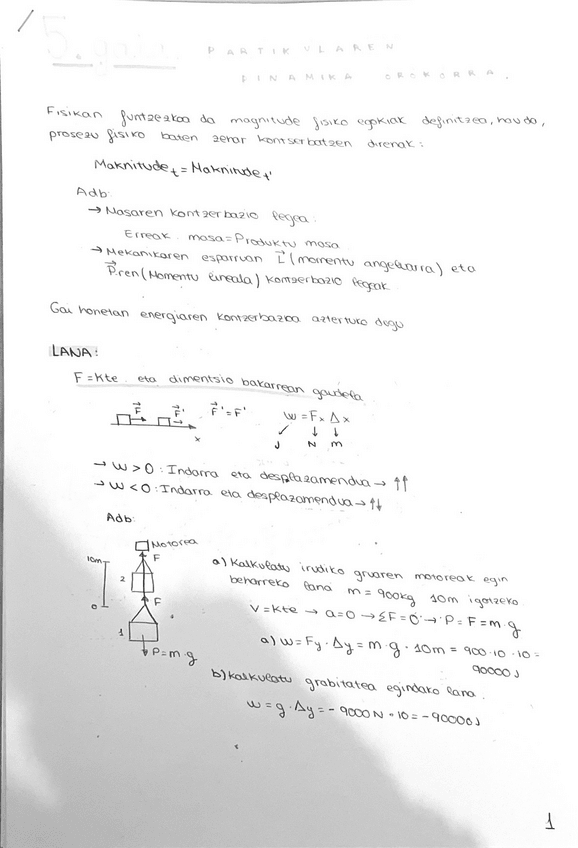 5. gaia
PARTIKULAREN
DINAMIKA OROKORRA.
Fisikan funtzezkoa da magnitude fisiko egokiak definitzea, hau da,
prosezu fisiko baten zehar kontserbatzen direnak:
Maknitude t = Maknitude t'
Adb:
→ Masaren kontzerbazio legea.
Erreak. masa = Produktu masa
→ Mekanikaren esparruan L⃗ (momentu angeluarra) eta
P⃗.ren (Momentu lineala) kontzerbazio legeak.
Gai honetan energiaren kontzerbazioa azterturo dogu
LANA:
F = Kte. eta dimentsio bakarrean gaudela
F⃗ F⃗' F⃗' = F' W = Fx Δx
x J N m
→ W > 0 : Indarra eta desplazamendua → ↑↑
→ W < 0 : Indarra eta desplazamendua → ↑↓
Adb:
Motorea
10m F
2
0 F
1
P = m·g
a) Kalkulatu irudiko gruaren motoreak egin
beharreko lana m = 900kg 10m igotzeko
V = Kte → a = 0 → ΣF = 0 → P = F = m·g
a) W = Fy · Δy = m·g · 10m = 900·10·10 =
90000 J
b) Kalkulatu grabitatea egindako lana.
W = g · Δy = - 9000N · 10 = - 90000J
1